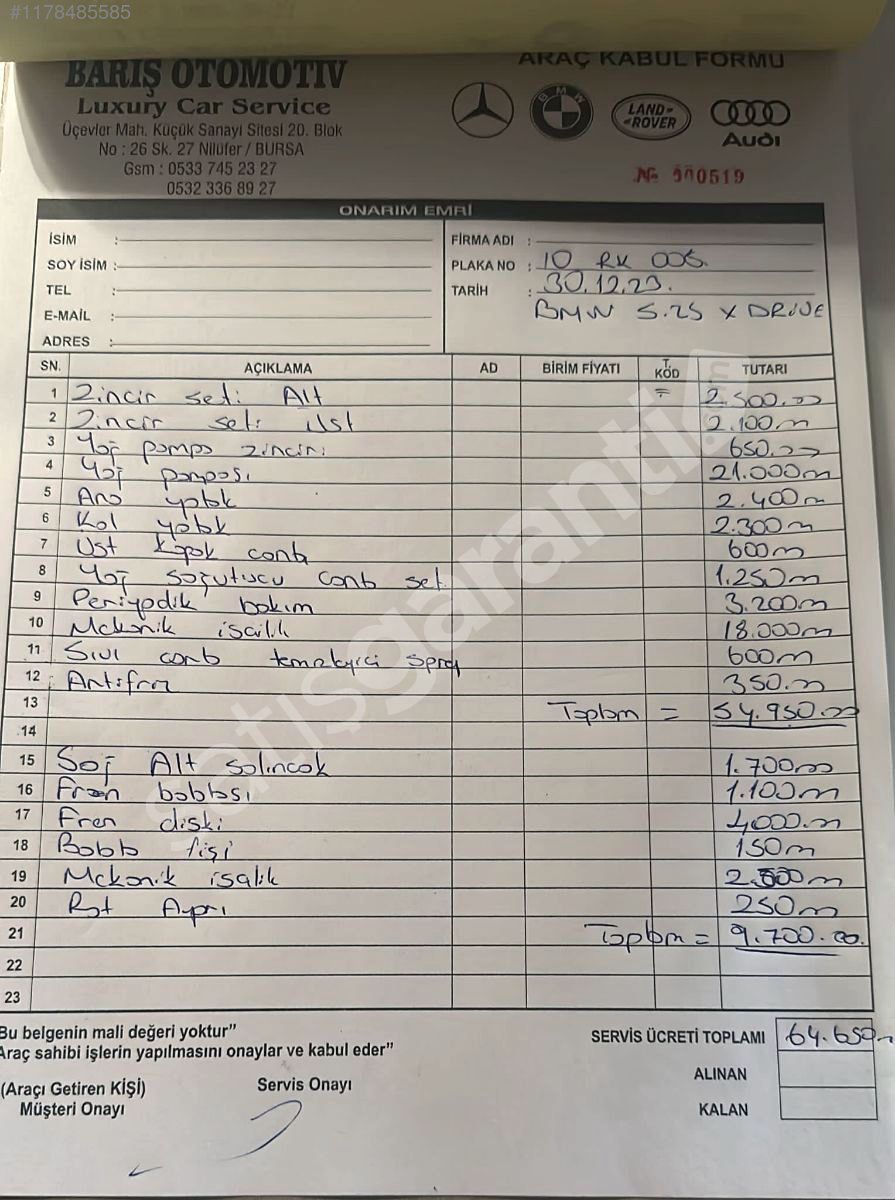 #1178485585
BARIŞ OTOMOTİV
Luxury Car Service
Üçevler Mah. Küçük Sanayi Sitesi 20. Blok
No : 26 Sk. 27 Nilüfer / BURSA
Gsm : 0533 745 23 27
0532 336 89 27
ARAÇ KABUL FORMU
BMW
LAND ROVER
Audi
№ 000519
ONARIM EMRİ
İSİM :
SOY İSİM :
TEL :
E-MAİL :
ADRES :
FİRMA ADI :
PLAKA NO : 10 RK 005.
TARİH : 30.12.23.
BMW 5.25 X DRIVE
SN. AÇIKLAMA AD BİRİM FİYATI T. KOD TUTARI
1 Zincir seti Alt = 2.500.00
2 Zincir seti üst 2.100.00
3 Yağ pompa zinciri 650.00
4 Yağ pompası 21.000.00
5 Ana yatak 2.400.00
6 Kol yatak 2.300.00
7 Üst kapak conta 600.00
8 Yağ soğutucu conta set. 1.250.00
9 Periyodik bakım 3.200.00
10 Mekanik işçilik 18.000.00
11 Sıvı conta temizleyici sprey 600.00
12 Antifriz 350.00
13 Toplam = 54.950.00
14
15 Sağ Alt salıncak 1.700.00
16 Fren balatası 1.100.00
17 Fren diski 4000.00
18 Balata fişi 150.00
19 Mekanik işçilik 2.500.00
20 Rot Ayarı 250.00
21 Toplam = 9.700.00.
22
23
Bu belgenin mali değeri yoktur”
Araç sahibi işlerin yapılmasını onaylar ve kabul eder”
(Araçı Getiren KİŞİ)
Müşteri Onayı
Servis Onayı
SERVİS ÜCRETİ TOPLAMI 64.650.
ALINAN
KALAN
satışgaranti.com